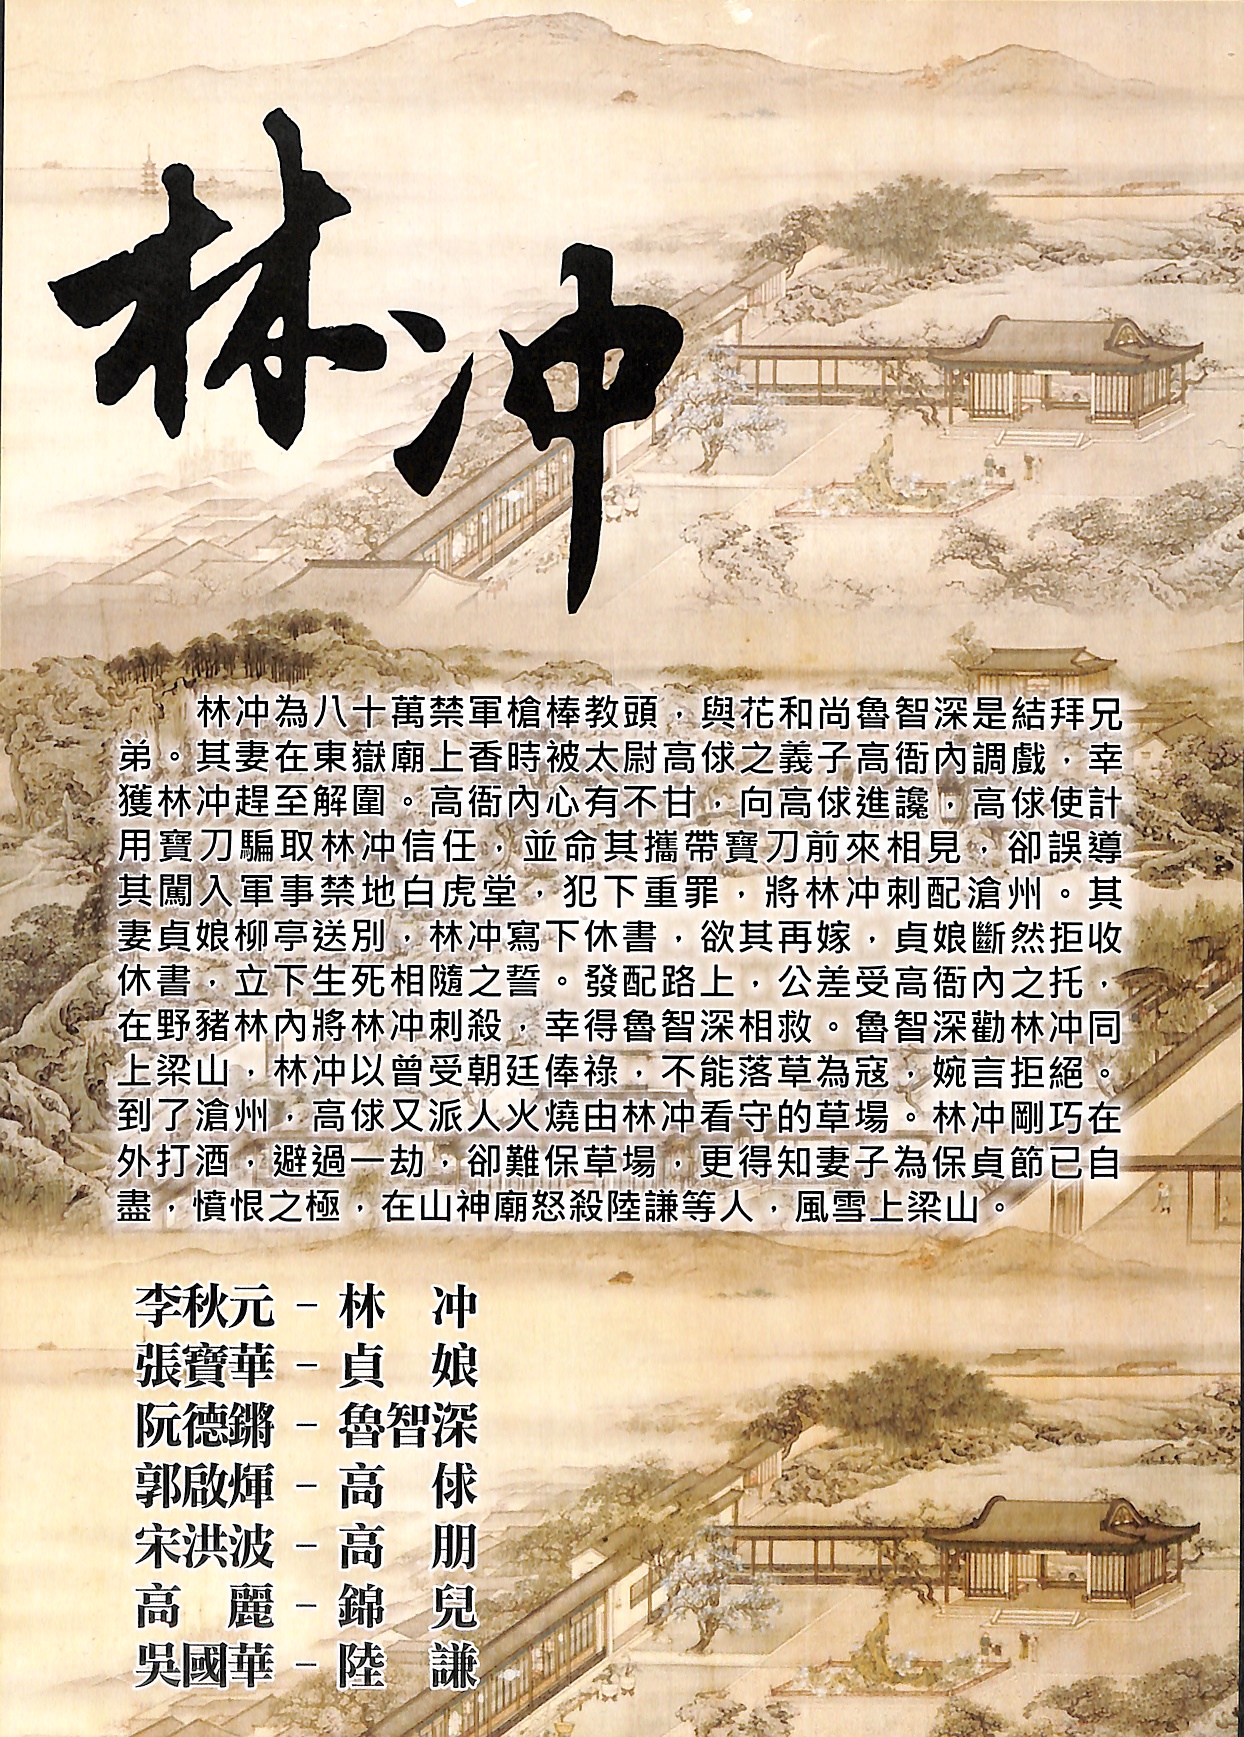 林冲
林冲為八十萬禁軍槍棒教頭，與花和尚魯智深是結拜兄
弟。其妻在東嶽廟上香時被太尉高俅之義子高衙內調戲，幸
獲林冲趕至解圍。高衙內心有不甘，向高俅進讒，高俅使計
用寶刀騙取林冲信任，並命其攜帶寶刀前來相見，卻誤導
其闖入軍事禁地白虎堂，犯下重罪，將林冲刺配滄州。其
妻貞娘柳亭送別，林冲寫下休書，欲其再嫁，貞娘斷然拒收
休書，立下生死相隨之誓。發配路上，公差受高衙內之托，
在野豬林內將林冲刺殺，幸得魯智深相救。魯智深勸林冲同
上梁山，林冲以曾受朝廷俸祿，不能落草為寇，婉言拒絕。
到了滄州，高俅又派人火燒由林冲看守的草場。林冲剛巧在
外打酒，避過一劫，卻難保草場，更得知妻子為保貞節已自
盡，憤恨之極，在山神廟怒殺陸謙等人，風雪上梁山。
李秋元 – 林　冲
張寶華 – 貞　娘
阮德鏘 – 魯智深
郭啟煇 – 高　俅
宋洪波 – 高　朋
高　麗 – 錦　兒
吳國華 – 陸　謙